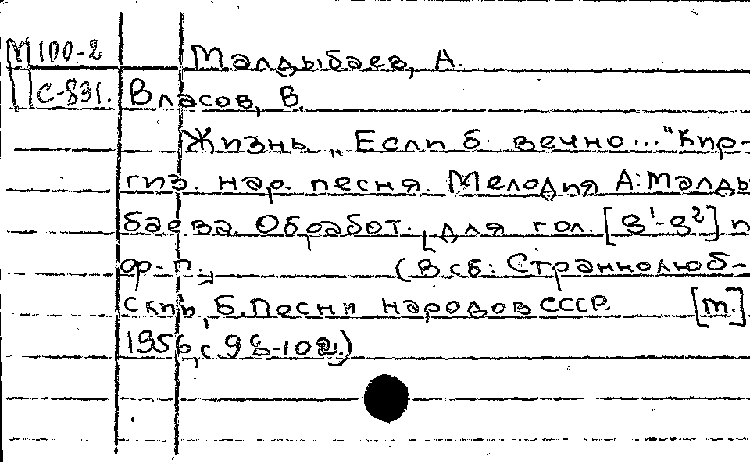 М 100-2 Малдыбаев, А.
С-831. Власов, В.
Жизнь „Если б вечно..." Кир-
гиз. нар. песня. Мелодия А. Малды
баева. Обработ. [для гол. [g¹-g²] и
ф-п.] (В сб: Страннолюб-
скпй, Б. Песни народов СССР. [т.]
1956, с 98-102.)